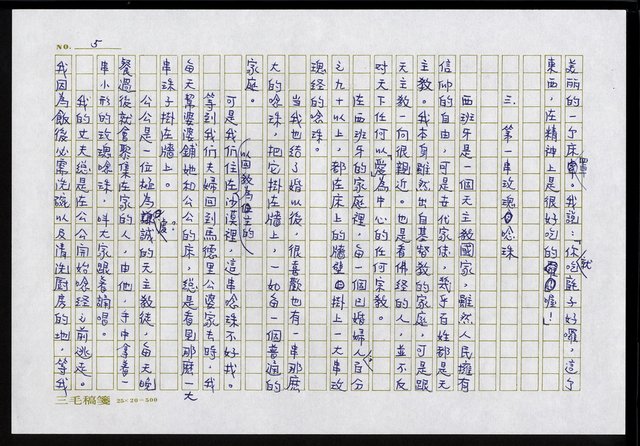 NO. 5
美丽的一个床罩。我説：「你就吃餃子好囉，這個
東西，在精神上是很好吃的喔！」
三、第一串玫瑰唸珠
西班牙是一個天主教國家，雖然人民擁有
信仰的自由，可是在古老家族，幾乎百姓都是天
主教。我本身雖然出自基督教的家庭，可是跟
天主教一向很親近。也是看佛經的人，並不反
对天下任何以愛為中心的任何宗教。
在西班牙的家庭裡，每一個已婚婦人，百分
之九十以上，都在床上的牆壁掛上一大串玫
瑰經的唸珠。
當我也结了婚以後，很喜歡也有一串那麼
大的唸珠，把它掛在牆上，一如每一個普通的
家庭。
可是我們住在沙漠裡，（以回教為主的）這串唸珠不好找。
等到我們夫婦回到馬德里公婆家去時，我
每天幫婆婆鋪她和公公的床，總是看見那麼一大
串珠子掛在牆上。
公公是一位極為虔誠的天主教徒，每天晚
餐過後就會聚集在家的人，由他，手中拿着一
串小形的玫瑰唸珠，叫大家跟着誦唱。
我的丈夫總是在公公開始唸經之前逃走。
我因為飯後必需洗碗以及清洗厨房的地，等我
三毛稿箋 25×20=500